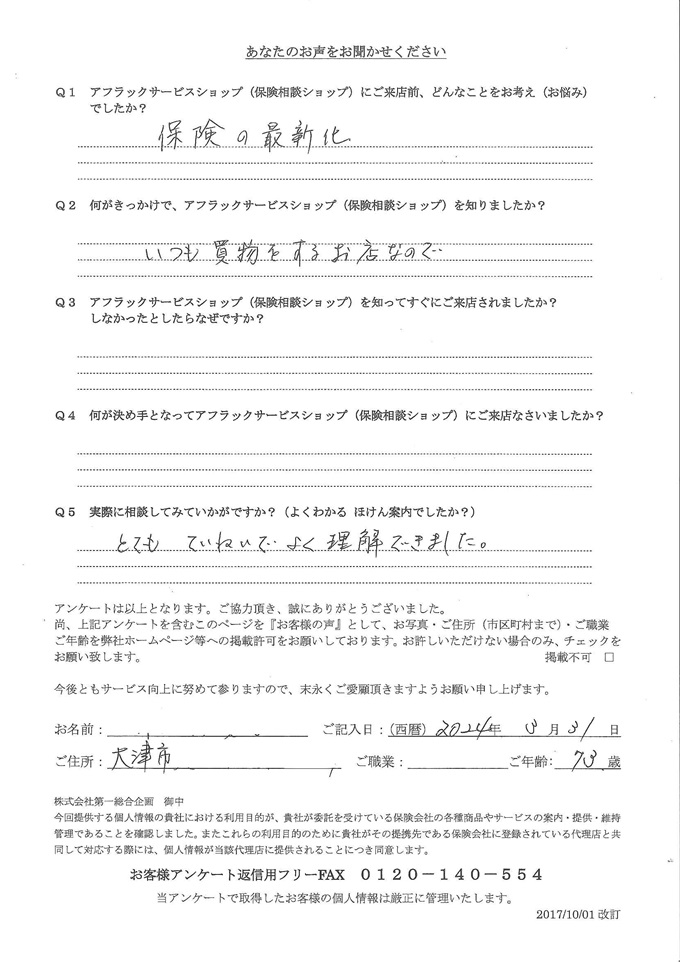 あなたのお声をお聞かせください
Q1 アフラックサービスショップ（保険相談ショップ）にご来店前、どんなことをお考え（お悩み）
でしたか？
保険の最新化
Q2 何がきっかけで、アフラックサービスショップ（保険相談ショップ）を知りましたか？
いつも買物をするお店なので
Q3 アフラックサービスショップ（保険相談ショップ）を知ってすぐにご来店されましたか？
しなかったとしたらなぜですか？
Q4 何が決め手となってアフラックサービスショップ（保険相談ショップ）にご来店なさいましたか？
Q5 実際に相談してみていかがですか？（よくわかる ほけん案内でしたか？）
とても ていねいで よく理解できました。
アンケートは以上となります。ご協力頂き、誠にありがとうございました。
尚、上記アンケートを含むこのページを『お客様の声』として、お写真・ご住所（市区町村まで）・ご職業
ご年齢を弊社ホームページ等への掲載許可をお願いしております。お許しいただけない場合のみ、チェックを
お願い致します。 掲載不可 □
今後ともサービス向上に努めて参りますので、末永くご愛顧頂きますようお願い申し上げます。
お名前： ご記入日：（西暦）2024年 3月31日
ご住所：大津市 ご職業： ご年齢：73歳
株式会社第一総合企画 御中
今回提供する個人情報の貴社における利用目的が、貴社が委託を受けている保険会社の各種商品やサービスの案内・提供・維持
管理であることを確認しました。またこれらの利用目的のために貴社がその提携先である保険会社に登録されている代理店と共
同して対応する際には、個人情報が当該代理店に提供されることにつき同意します。
お客様アンケート返信用フリーFAX 0120－140－554
当アンケートで取得したお客様の個人情報は厳正に管理いたします。
2017/10/01 改訂